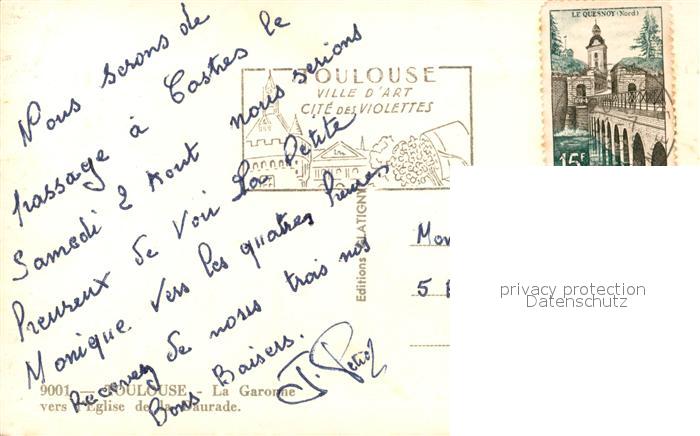 LE QUESNOY (Nord)
15F
TOULOUSE
VILLE D'ART
CITÉ DES VIOLETTES
Nous serons de
passage à Castres le
Samedi 2 Aout nous serions
Heureux de voir la Petite
Monique vers les quatres heures
Recevez de nous trois nos
Bons Baisers.
Editions
5
privacy protection
Datenschutz
9001 — TOULOUSE - La Garonne
vers l'Eglise de la Daurade.